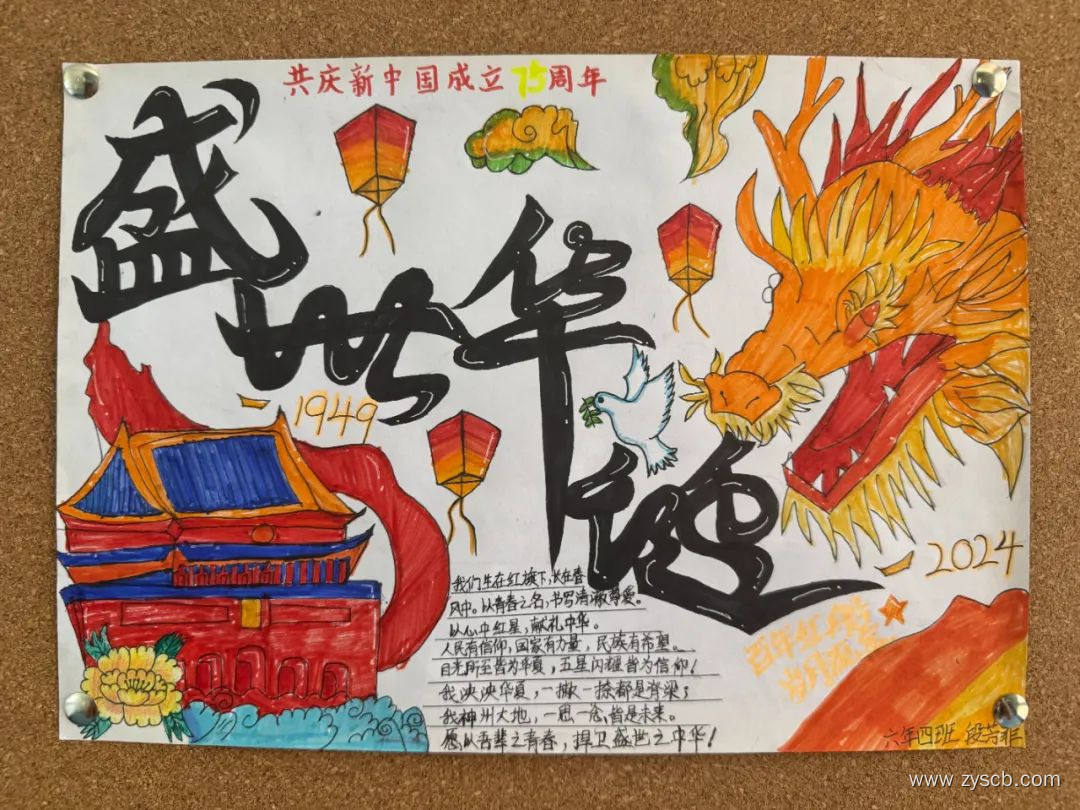 共庆新中国成立75周年
盛世华诞
1949
2024
我们生在红旗下,长在春
风中。以青春之名,书写清澈挚爱。
以心中红星,献礼中华。
人民有信仰,国家有力量,民族有希望。
目光所至皆为华夏,五星闪耀皆为信仰!
我泱泱华夏,一撇一捺都是脊梁;
我神州大地,一思一念,皆是未来。
愿以吾辈之青春,捍卫盛世之中华!
百年红船
六年四班 段芳菲
www.zyscb.com